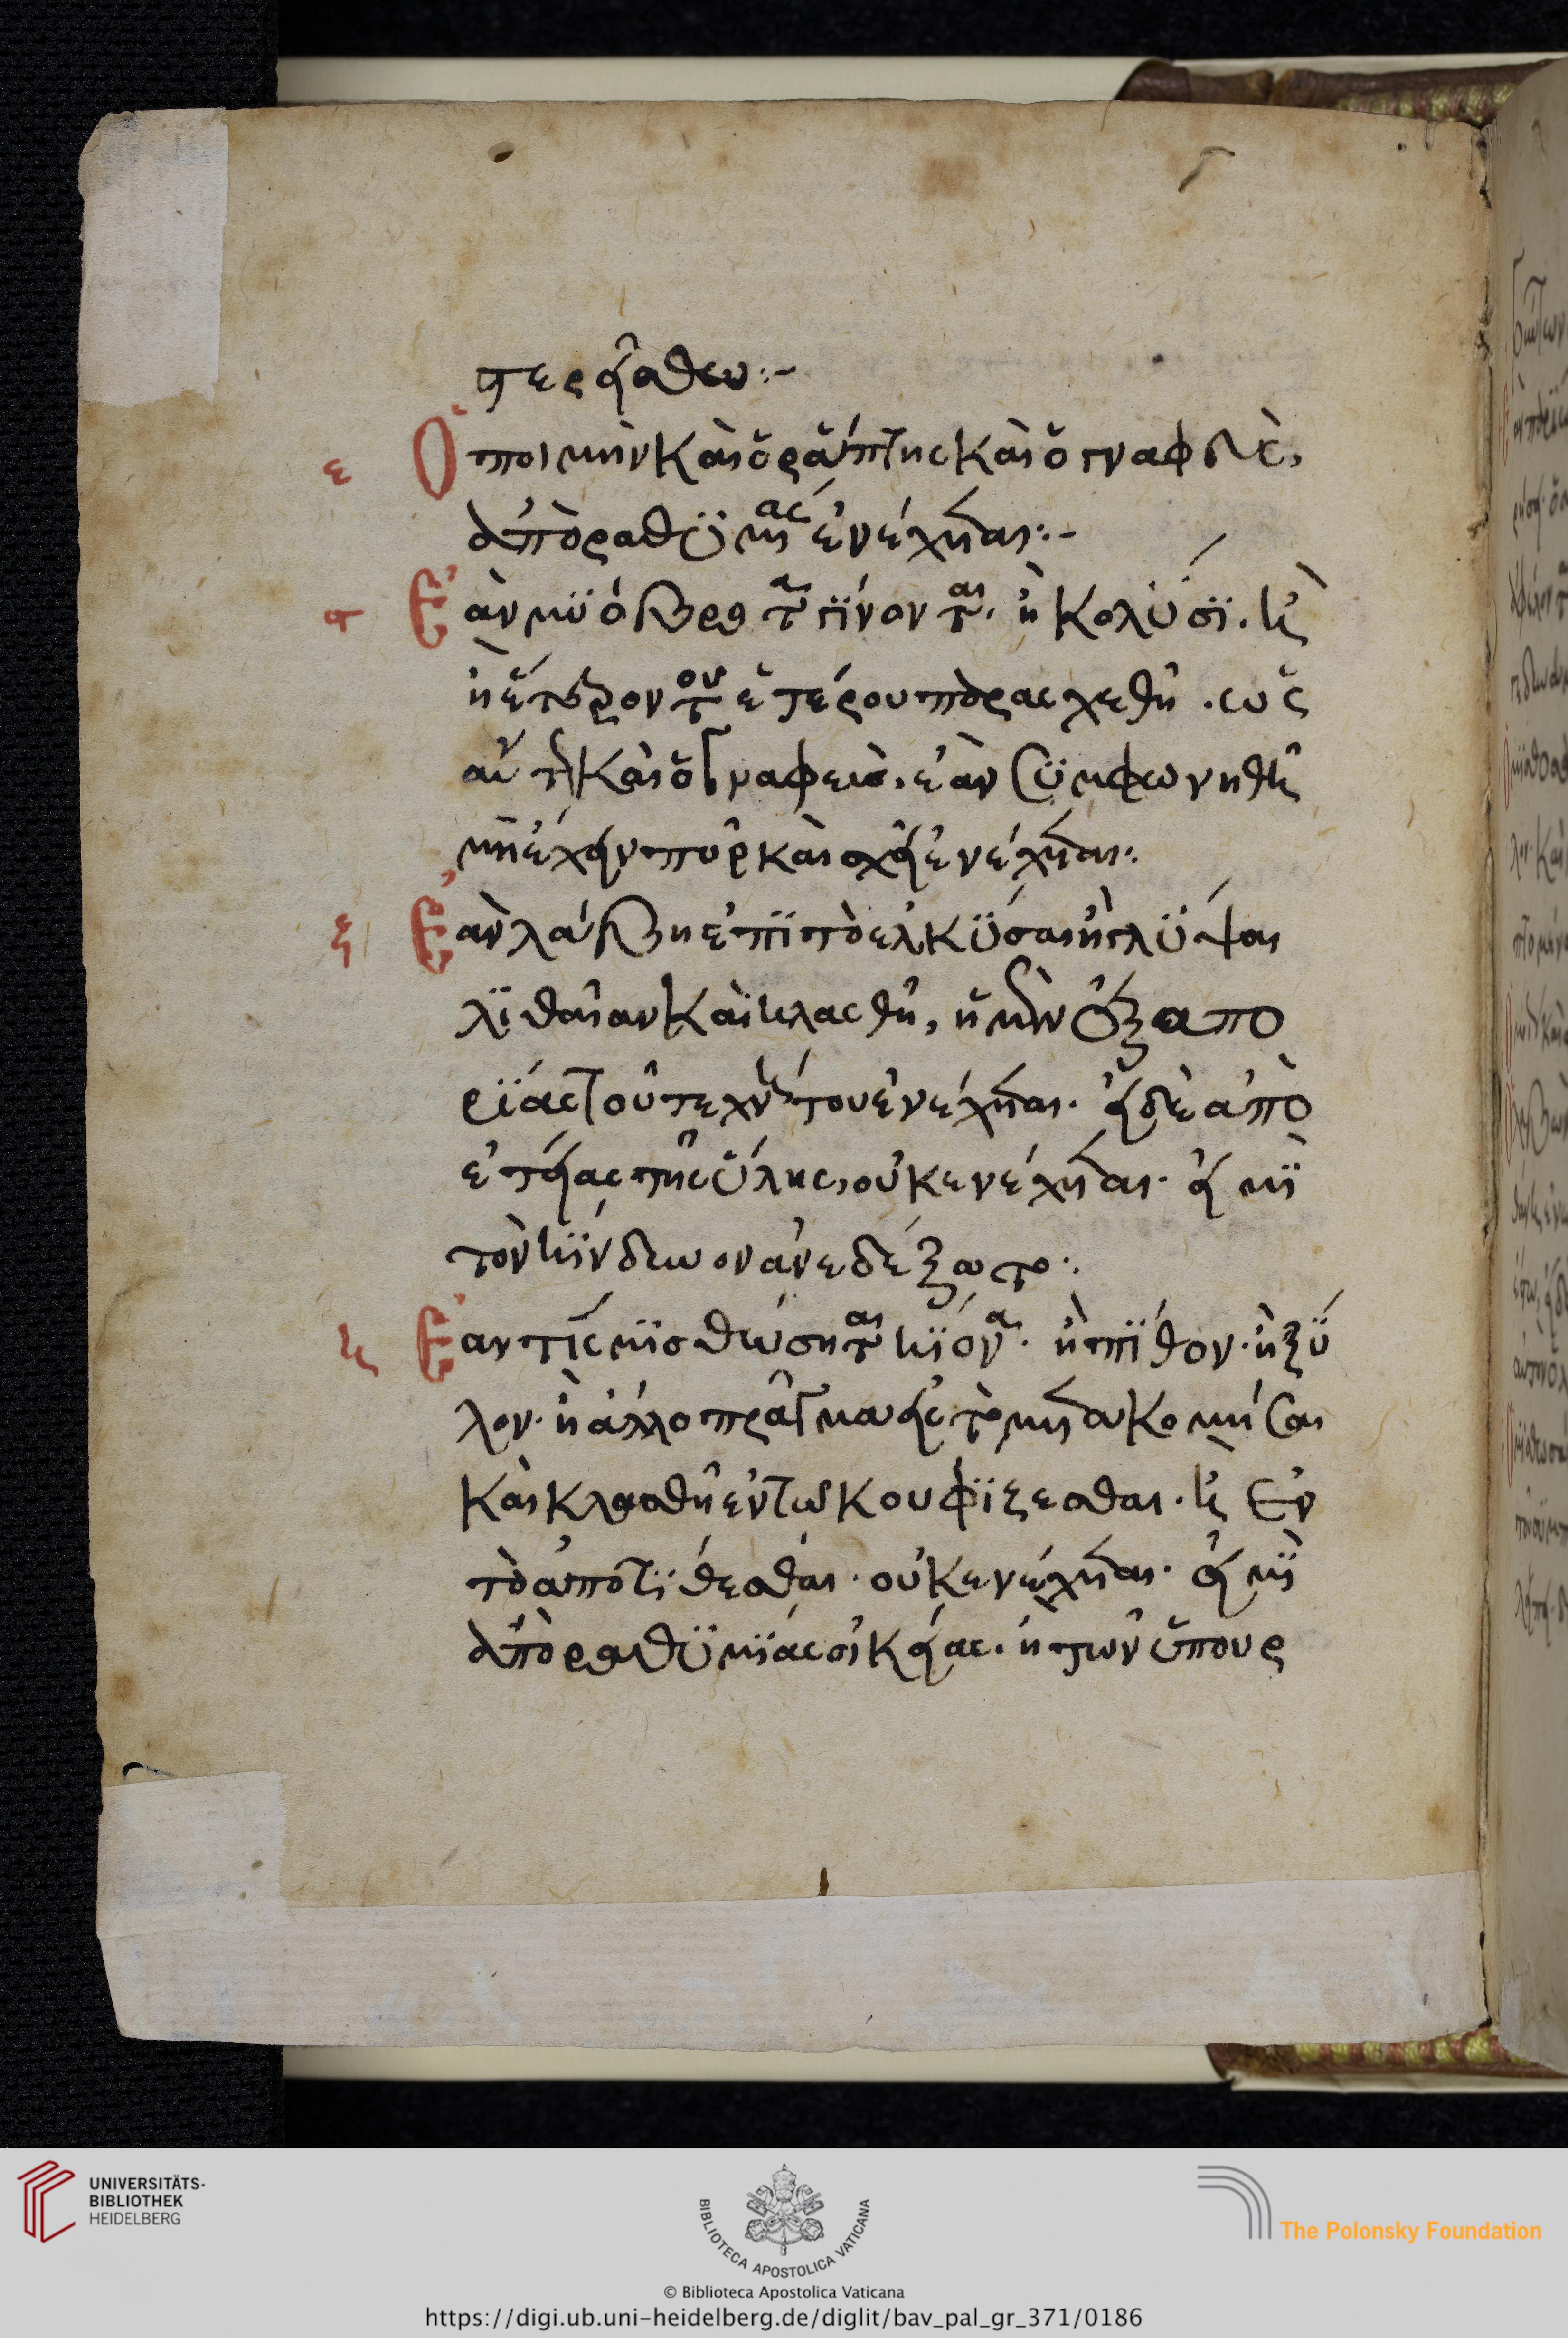 στερεῖσθω:-
ε Ὁ ποιμὴν καὶ ὁ ράπτης καὶ ὁ γναφεὺς,
ἀπὸ ραθυμίας ἐνέχεται:-
ς Ἐὰν μύό βρα τ πίνον τ. ἢ κολύσι. κ
ἢ ἕτερον τοῦ ἑτέρου παρασχεθῆ. ὡς
καὶ ὁ γναφεὺς. ἐὰν συμφωνηθῆ
μὴ ἔχειν πῦρ καὶ σχῆ ἐνέχεται:.
ζ Ἐὰν λάβη ἐπὶ τὸ ἑλκύσαι ἢ γλύψαι
λιθαίαν καὶ κλασθῆ, εἰ μὲν ἐξ απο
ρίας τοῦ τεχνίτου ἐνέχεται. εἰ δὲ ἀπὸ
ἑτείας τῆς ὕλης, οὐκ ενέχεται. εἰ μὴ
τὸν κίνδυνον ἀνεδέξατο:.
η Ἐαν τίς μισθώσηται κίονα. ἢ πίθον. ἢ ξύ
λον. ἢ ἄλλο πρᾶγμα εἰς τὸ μετακομίσαι
καὶ κλασθῆ ἐν τῶ κουφίζεσθαι. κ ἐν
τὸ ἀποτίθεσθαι. οὐκ ενέχεται. εἰ μὴ
ἀπὸ ραθυμίας οἰκείας. ἢ τῶν ὑπουρ
UNIVERSITÄTS-
BIBLIOTHEK
HEIDELBERG
BIBLIOTECA APOSTOLICA VATICANA
The Polonsky Foundation
© Biblioteca Apostolica Vaticana
https://digi.ub.uni-heidelberg.de/diglit/bav_pal_gr_371/0186